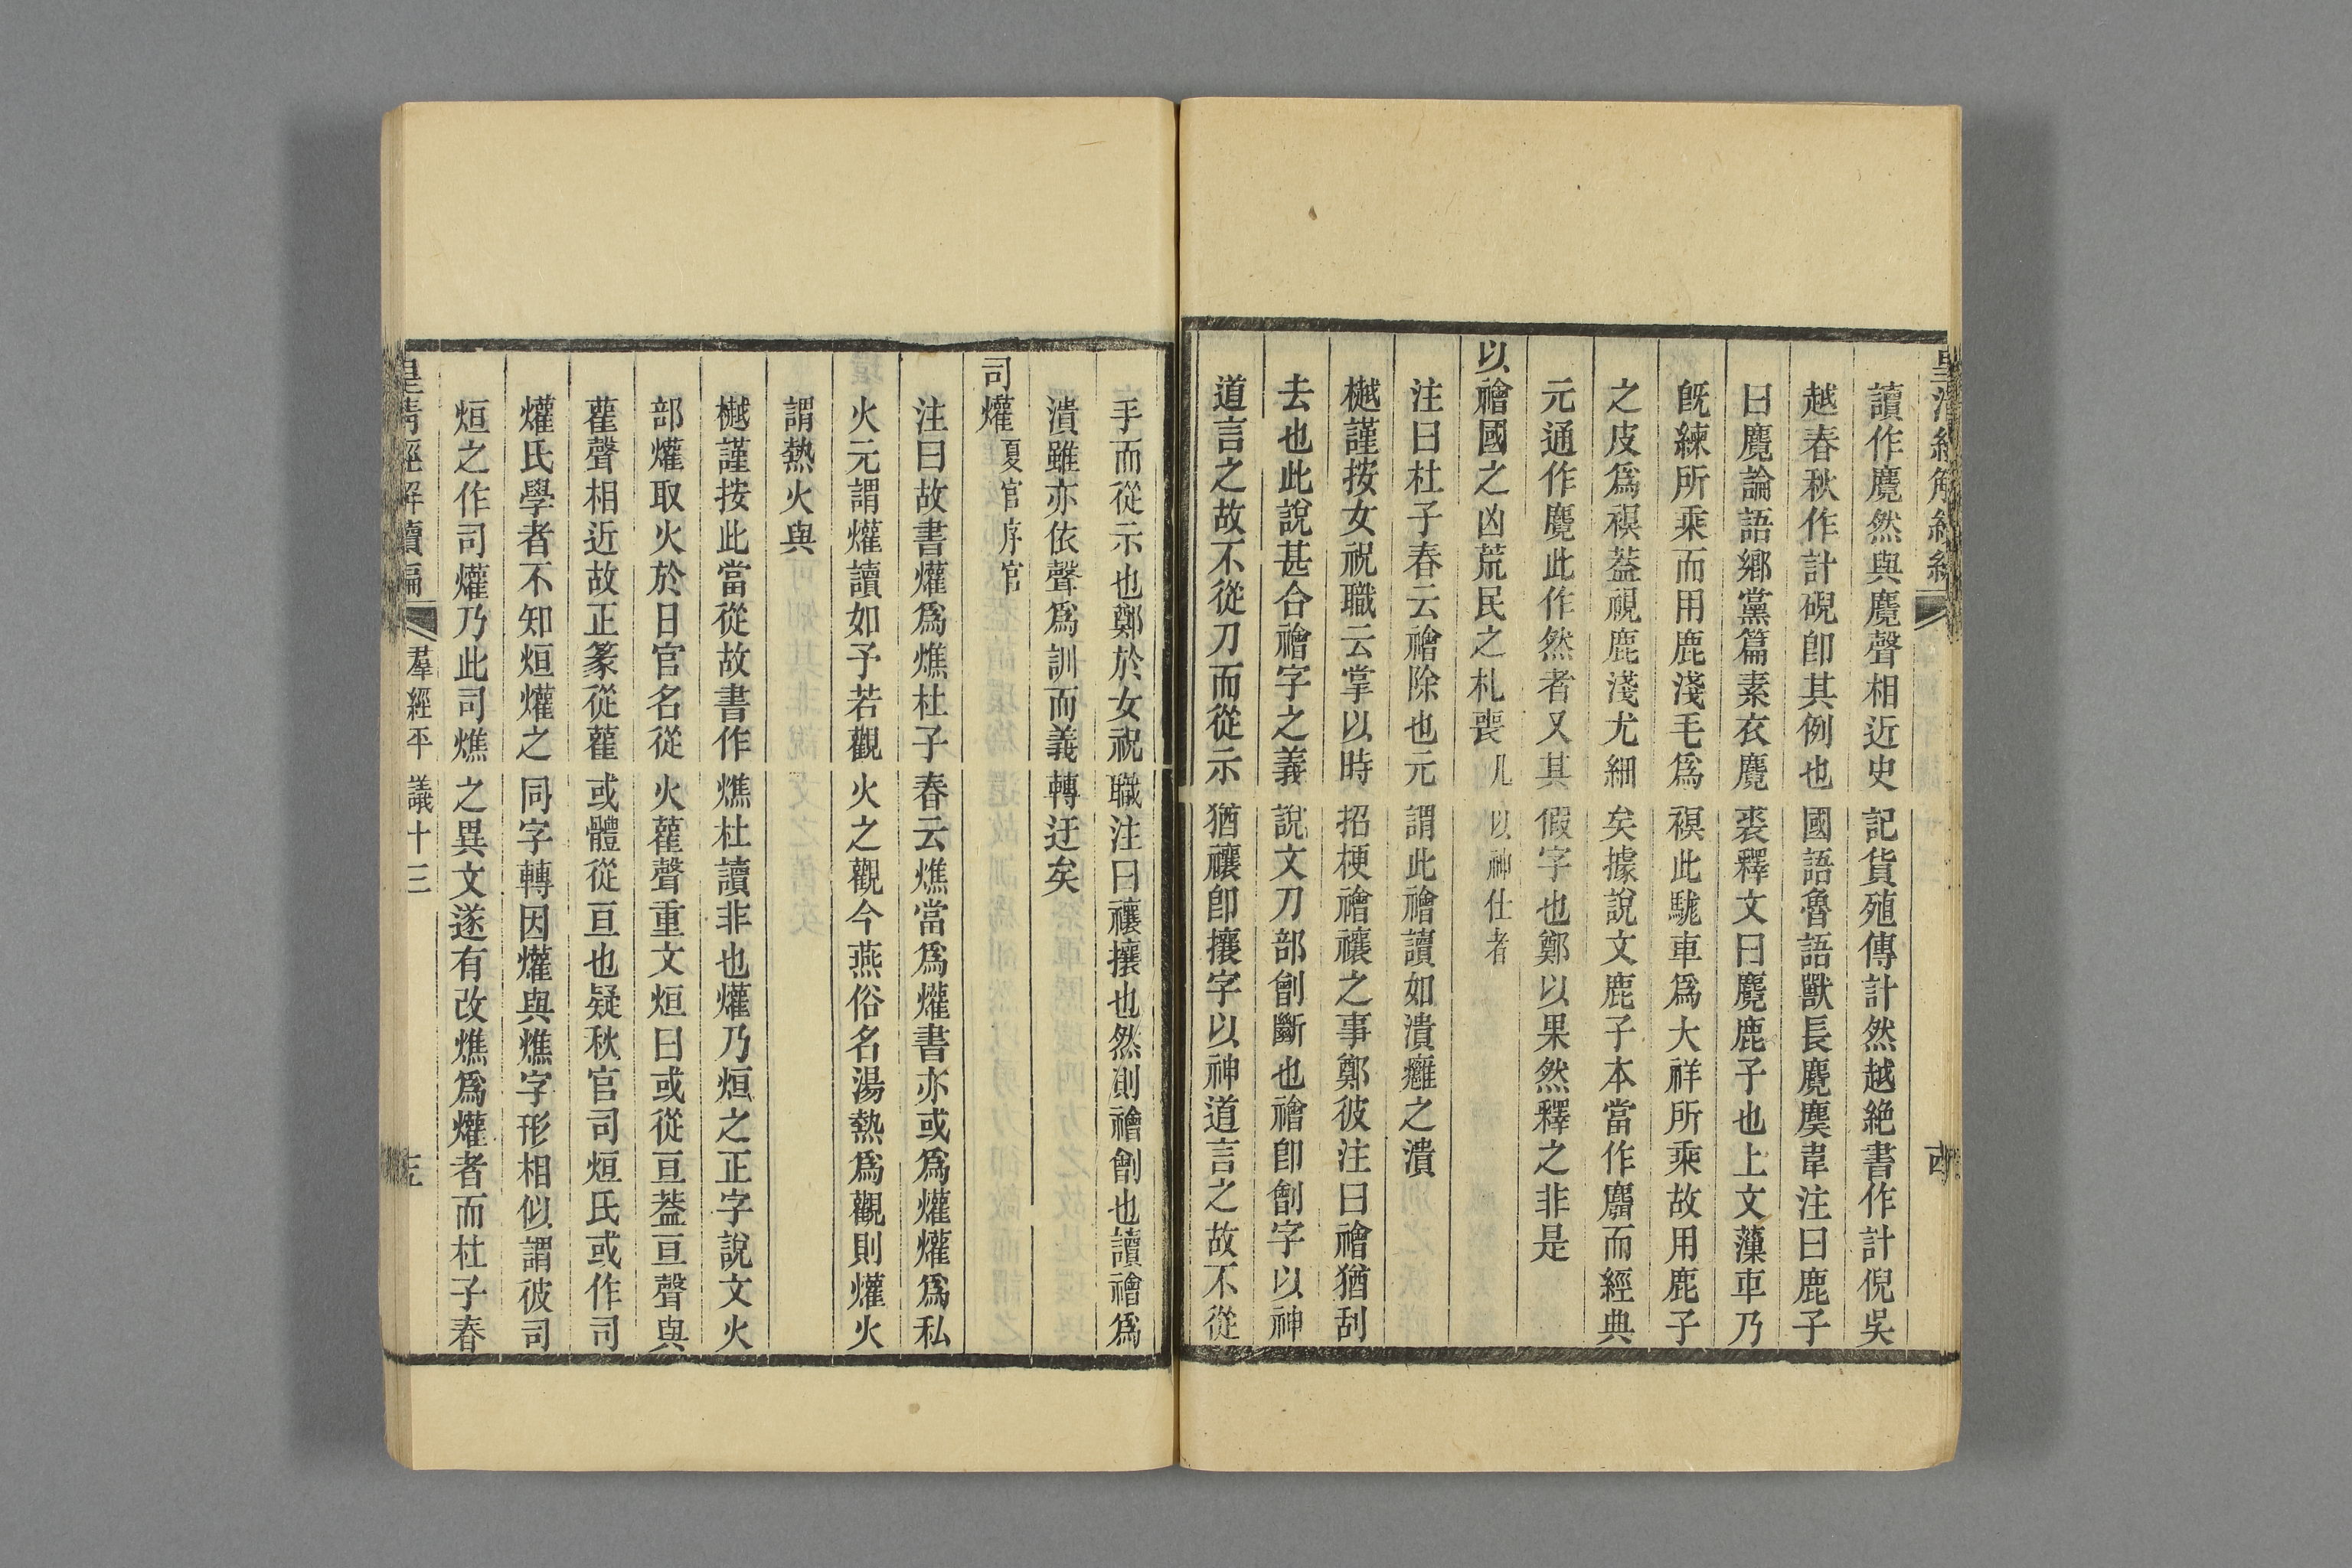 皇清經解續編
讀作麑然與麑聲相近史記貨殖傳計然越絶書作計倪吳
越春秋作計硯卽其例也國語魯語獸長麑䴠韋注曰鹿子
曰麑論語鄉黨篇素衣麑裘釋文曰麑鹿子也上文薻車乃
旣練所乘而用鹿淺毛爲𧜀此駹車爲大祥所乘故用鹿子
之皮爲𧜀葢視鹿淺尤細矣據說文鹿子本當作麛而經典
元通作麑此作然者又其假字也鄭以果然釋之非是
以禬國之凶荒民之札喪 凡以神仕者
注曰杜子春云禬除也元謂此禬讀如潰癰之潰
樾謹按女祝職云掌以時招梗禬禳之事鄭彼注曰禬猶刮
去也此說甚合禬字之義說文刀部劊斷也禬卽劊字以神
道言之故不從刀而從示猶禳卽攘字以神道言之故不從
手而從示也鄭於女祝職注曰禳攘也然則禬劊也讀禬爲
潰雖亦依聲爲訓而義轉迂矣
司爟 夏官序官
注曰故書爟爲燋杜子春云燋當爲爟書亦或爲爟爟爲私
火元謂爟讀如予若觀火之觀今燕俗名湯熱爲觀則爟火
謂熱火與
樾謹按此當從故書作燋杜讀非也爟乃烜之正字說文火
部爟取火於日官名從火雚聲重文烜曰或從亘葢亘聲與
雚聲相近故正篆從雚或體從亘也疑秋官司烜氏或作司
爟氏學者不知烜爟之同字轉因爟與燋字形相似謂彼司
烜之作司爟乃此司燋之異文遂有改燋爲爟者而杜子春
皇清經解續編 羣經平議十三